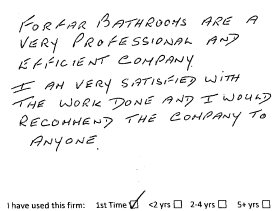 FORFAR BATHROOMS ARE A
VERY PROFESSIONAL AND
EFFICIENT COMPANY.
I AM VERY SATISFIED WITH
THE WORK DONE AND I WOULD
RECOMMEND THE COMPANY TO
ANYONE.
I have used this firm: 1st Time ☑ <2 yrs ☐ 2-4 yrs ☐ 5+ yrs ☐